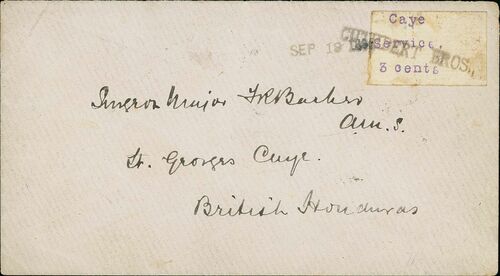 Caye
service.
3 cents
SEP 19
CUTHBERT BROS.,
Surgeon Major FR Barker
A.M.S.
St. Georges Caye.
British Honduras